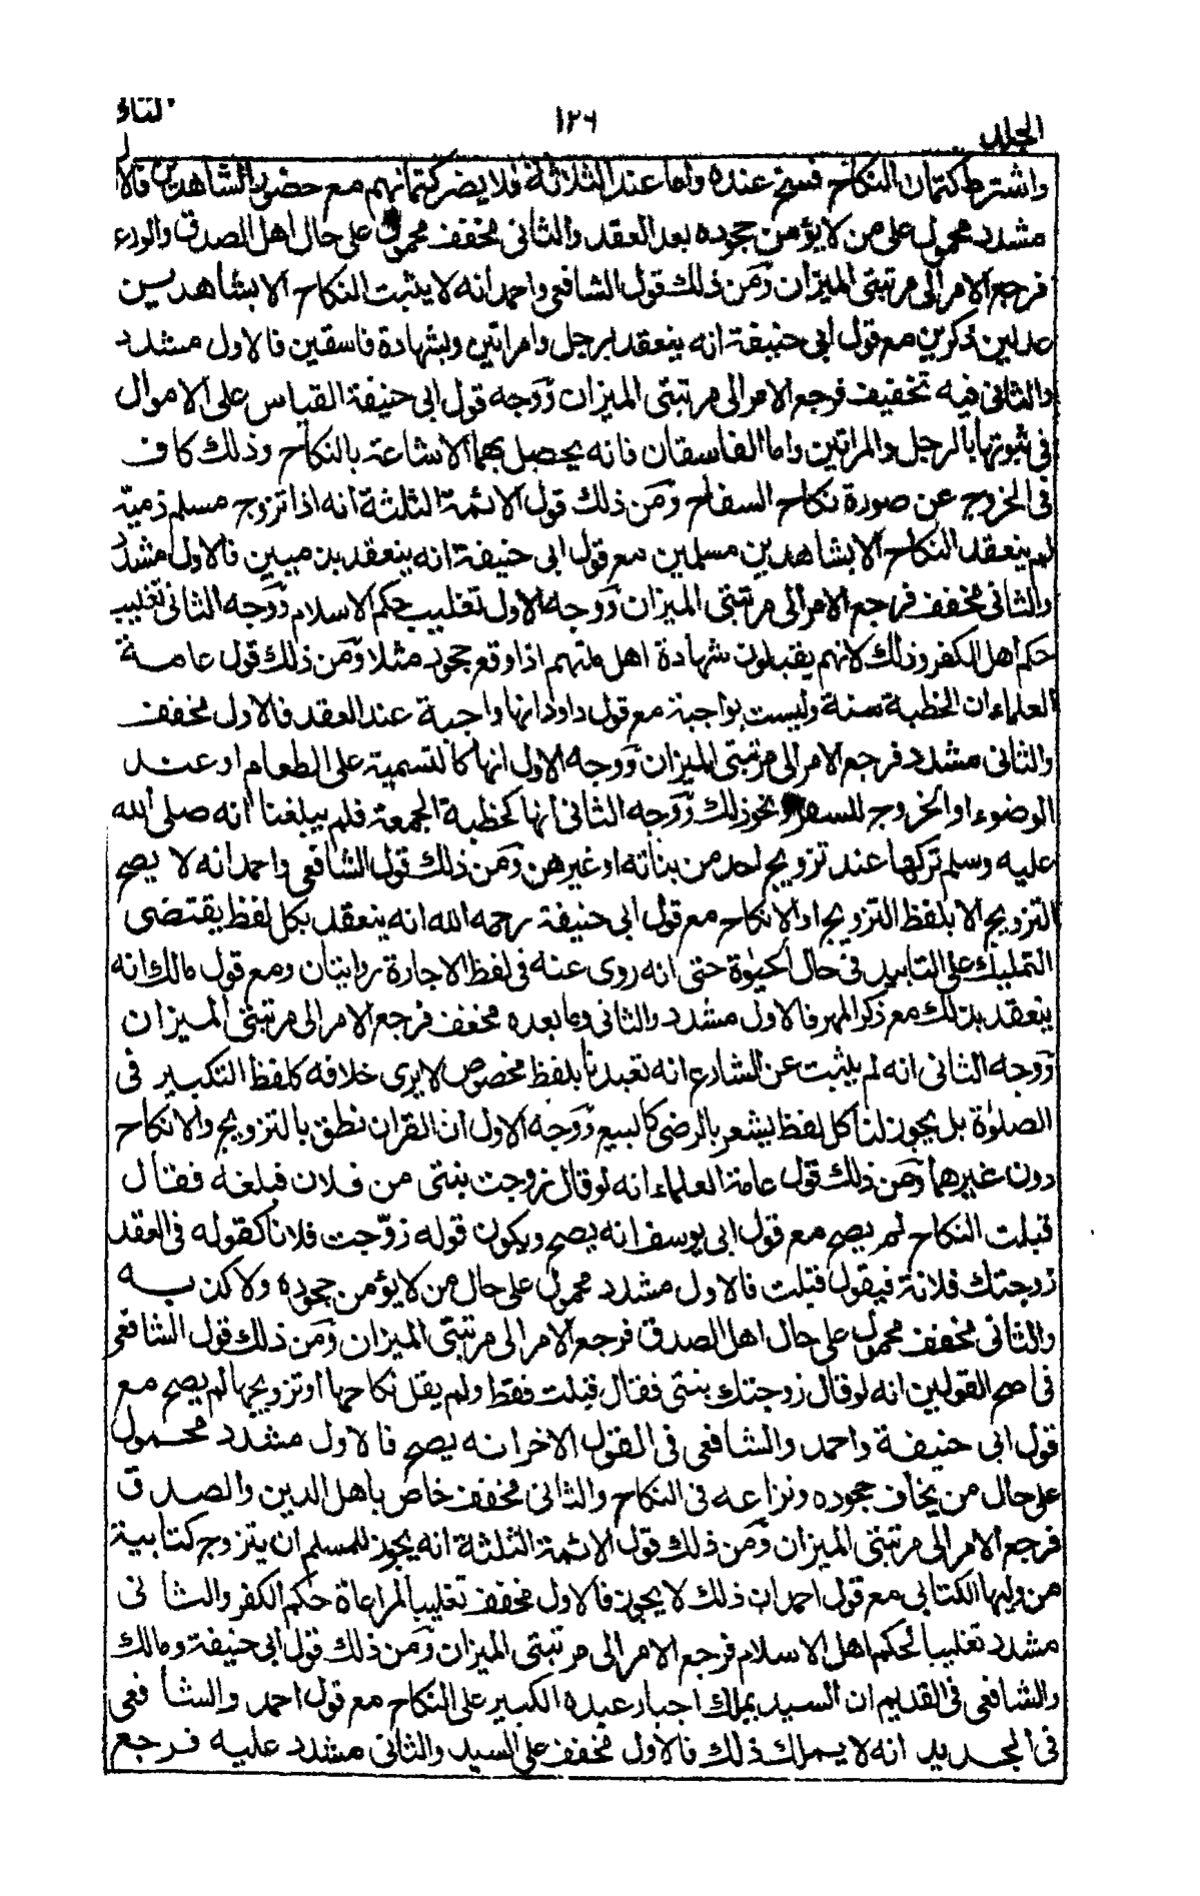 الجلد ١٢٦ الثانى
واشترط كتمان النكاح فسخ عنده واما عند الثلاثة فلا يضر كتمانهم مع حضور الشاهدين فالاول
مشدد محمول على من لا يؤمن جحوده بعد العقد والثانى مخفف محمول على حال اهل الصدق والورع
فرجع الامر الى مرتبتى الميزان ومن ذلك قول الشافعى واحمد انه لا يثبت النكاح الا بشاهدين
عدلين ذكرين مع قول ابى حنيفة انه ينعقد برجل وامراتين وبشهادة فاسقين فالاول مشدد
والثانى فيه تخفيف فرجع الامر الى مرتبتى الميزان ووجه قول ابى حنيفة القياس على الاموال
فى ثبوتها بالرجل والمراتين واما الفاسقان فانه يحصل بهما الاشاعة بالنكاح وذلك كاف
فى الخروج عن صورة نكاح السفاح ومن ذلك قول الائمة الثلثة انه اذا تزوج مسلم ذمية
لم ينعقد النكاح الا بشاهدين مسلمين مع قول ابى حنيفة انه ينعقد بذميين فالاول مشدد
والثانى مخفف فرجع الامر الى مرتبتى الميزان ووجه الاول تغليب حكم الاسلام ووجه الثانى تغليب
حكم اهل الكفر وذلك لانهم يقبلون شهادة اهل ملتهم اذا وقع جحود مثلا ومن ذلك قول عامة
العلماء ان الخطبة سنة وليست بواجبة مع قول داود انها واجبة عند العقد فالاول مخفف
والثانى مشدد فرجع الامر الى مرتبتى الميزان ووجه الاول انها كالتسمية على الطعام او عند
الوضوء او الخروج للسفر ونحو ذلك ووجه الثانى انها كخطبة الجمعة فلم يبلغنا انه صلى الله
عليه وسلم تركها عند تزويج احد من بناته او غيرهن ومن ذلك قول الشافعى واحمد انه لا يصح
التزويج الا بلفظ التزويج او الانكاح مع قول ابى حنيفة رحمه الله انه ينعقد بكل لفظ يقتضى
التمليك على التابيد فى حال الحيوة حتى انه روى عنه فى لفظ الاجارة روايتان ومع قول مالك انه
ينعقد بذلك مع ذكر المهر فالاول مشدد والثانى وما بعده مخفف فرجع الامر الى مرتبتى الميزان
ووجه الثانى انه لم يثبت عن الشارع انه تعبدنا بلفظ مخصوص لا يرى خلافه كلفظ التكبير فى
الصلوة بل يجوز لنا كل لفظ يشعر بالرضى كالبيع ووجه الاول ان القران نطق بالتزويج والانكاح
دون غيرهما ومن ذلك قول عامة العلماء انه لو قال زوجت بنتى من فلان فبلغه فقال
قبلت النكاح لم يصح مع قول ابى يوسف انه يصح ويكون قوله زوّجت فلانا كقوله فى العقد
زوجتك فلانة فيقول قبلت فالاول مشدد محمول على حال من لا يؤمن جحوده ولا كذبه
والثانى مخفف محمول على حال اهل الصدق فرجع الامر الى مرتبتى الميزان ومن ذلك قول الشافعى
فى اصح القولين انه لو قال زوجتك بنتى فقال قبلت فقط ولم يقل نكاحها او تزويجها لم يصح مع
قول ابى حنيفة واحمد والشافعى فى القول الاخر انه يصح فالاول مشدد محمول
على حال من يخاف جحوده ونزاعه فى النكاح والثانى مخفف خاص باهل الدين والصدق
فرجع الامر الى مرتبتى الميزان ومن ذلك قول الائمة الثلثة انه يجوز للمسلم ان يتزوج كتابية
من وليها الكتابى مع قول احمد ان ذلك لا يجوز فالاول مخفف تغليبا لمراعاة حكم الكفر والثانى
مشدد تغليبا لحكم اهل الاسلام فرجع الامر الى مرتبتى الميزان ومن ذلك قول ابى حنيفة ومالك
والشافعى فى القديم ان السيد يملك اجبار عبده الكبير على النكاح مع قول احمد والشافعى
فى الجديد انه لا يملك ذلك فالاول مخفف على السيد والثانى مشدد عليه فرجع